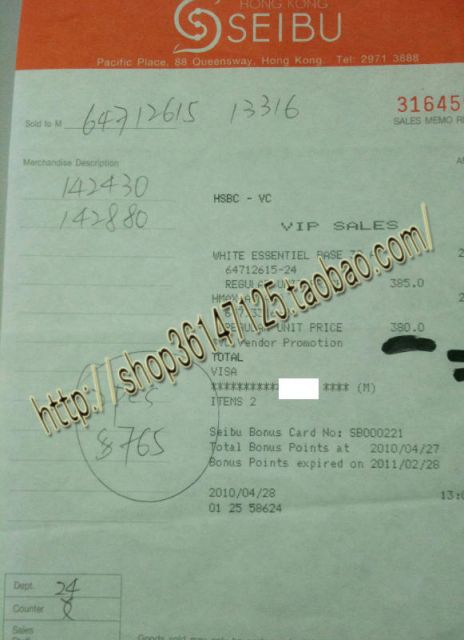 HONG KONG
SEIBU
Pacific Place, 88 Queensway, Hong Kong Tel: 2971 3888
Sold to M 64712615 13316
31645
SALES MEMO
Merchandise Description
142430
142880
HSBC - VC
VIP SALES
WHITE ESSENTIEL BASE
64712615-24
385.0
UNIT PRICE 380.0
Vendor Promotion
TOTAL
VISA
**** (M)
ITEMS 2
$765
Seibu Bonus Card No: SB000221
Total Bonus Points at 2010/04/27
Bonus Points expired on 2011/02/28
2010/04/28
01 25 58624
13:0
Dept. 24
Counter 8
Sales
http://shop36147125.taobao.com/